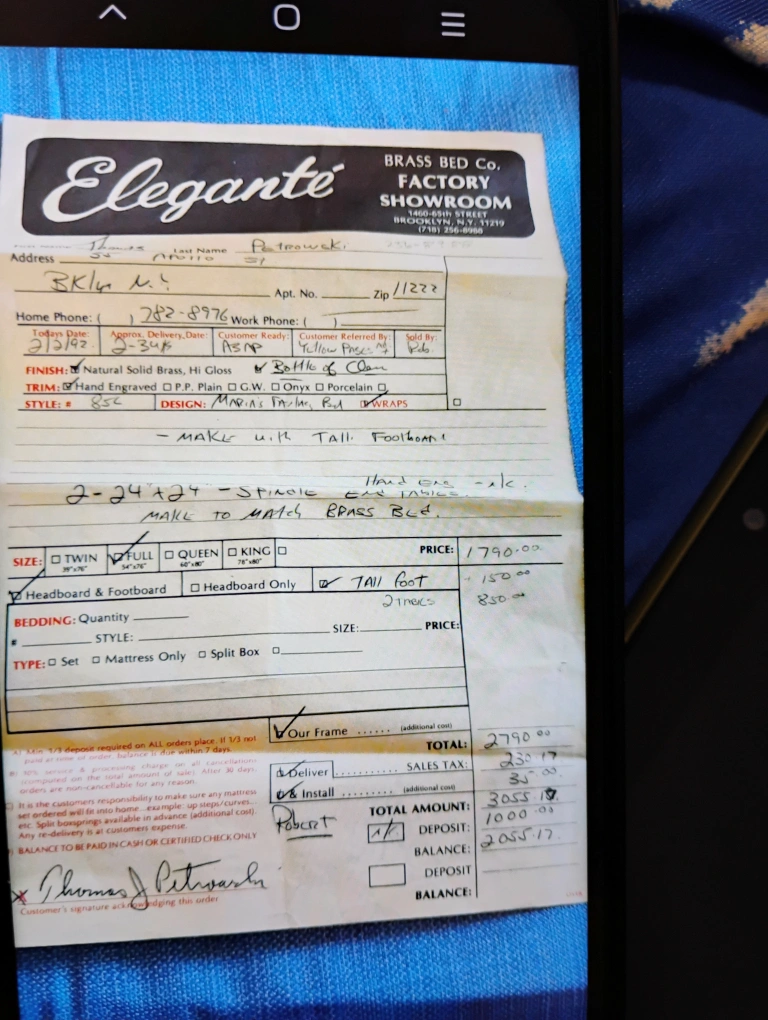 Eleganté
BRASS BED Co.
FACTORY
SHOWROOM
1460-65th STREET
BROOKLYN, N.Y. 11219
(718) 256-8988
Thomas Last Name Petrowski
Address Apollo St
BKlyn N.Y. Apt. No. Zip 11222
Home Phone: ( ) 782-8976 Work Phone: ( )
Todays Date: Approx. Delivery Date: Customer Ready: Customer Referred By: Sold By:
2/2/92 ASAP Yellow Pages Rob
FINISH: Natural Solid Brass, Hi Gloss Bottle of Clean
TRIM: Hand Engraved P.P. Plain G.W. Onyx Porcelain
STYLE: # DESIGN: MARIA'S WRAPS
- MAKE with TALL FootboarD
HanD Eng - n/c.
2-24"x24" - SPINDLE END TABLES.
MAKE TO MATCH BRASS BED.
SIZE: TWIN FULL QUEEN KING PRICE: 1790.00
39"x76" 54"x76" 60"x80" 78"x80"
Headboard & Footboard Headboard Only TALL FOOT 150.00
2 TABLES 850.00
BEDDING: Quantity
# STYLE: SIZE: PRICE:
TYPE: Set Mattress Only Split Box
Our Frame ...... (additional cost)
TOTAL: 2790 00
Deliver .......... SALES TAX: 230.17
& Install ........ (additional cost) 35.00
TOTAL AMOUNT: 3055.17
Robert DEPOSIT: 1000.00
BALANCE: 2055.17
DEPOSIT
BALANCE:
A) Min. 1/3 deposit required on ALL orders place. If 1/3 not
paid at time of order, balance is due within 7 days.
B) 10% service & processing charge on all cancellations
(computed on the total amount of sale). After 30 days,
orders are non-cancellable for any reason.
It is the customers responsibility to make sure any mattress
set ordered will fit into home...example: up steps/curves...
etc. Split boxsprings available in advance (additional cost).
Any re-delivery is at customers expense.
BALANCE TO BE PAID IN CASH OR CERTIFIED CHECK ONLY
x Thomas J Petrowski
Customer's signature acknowledging this order